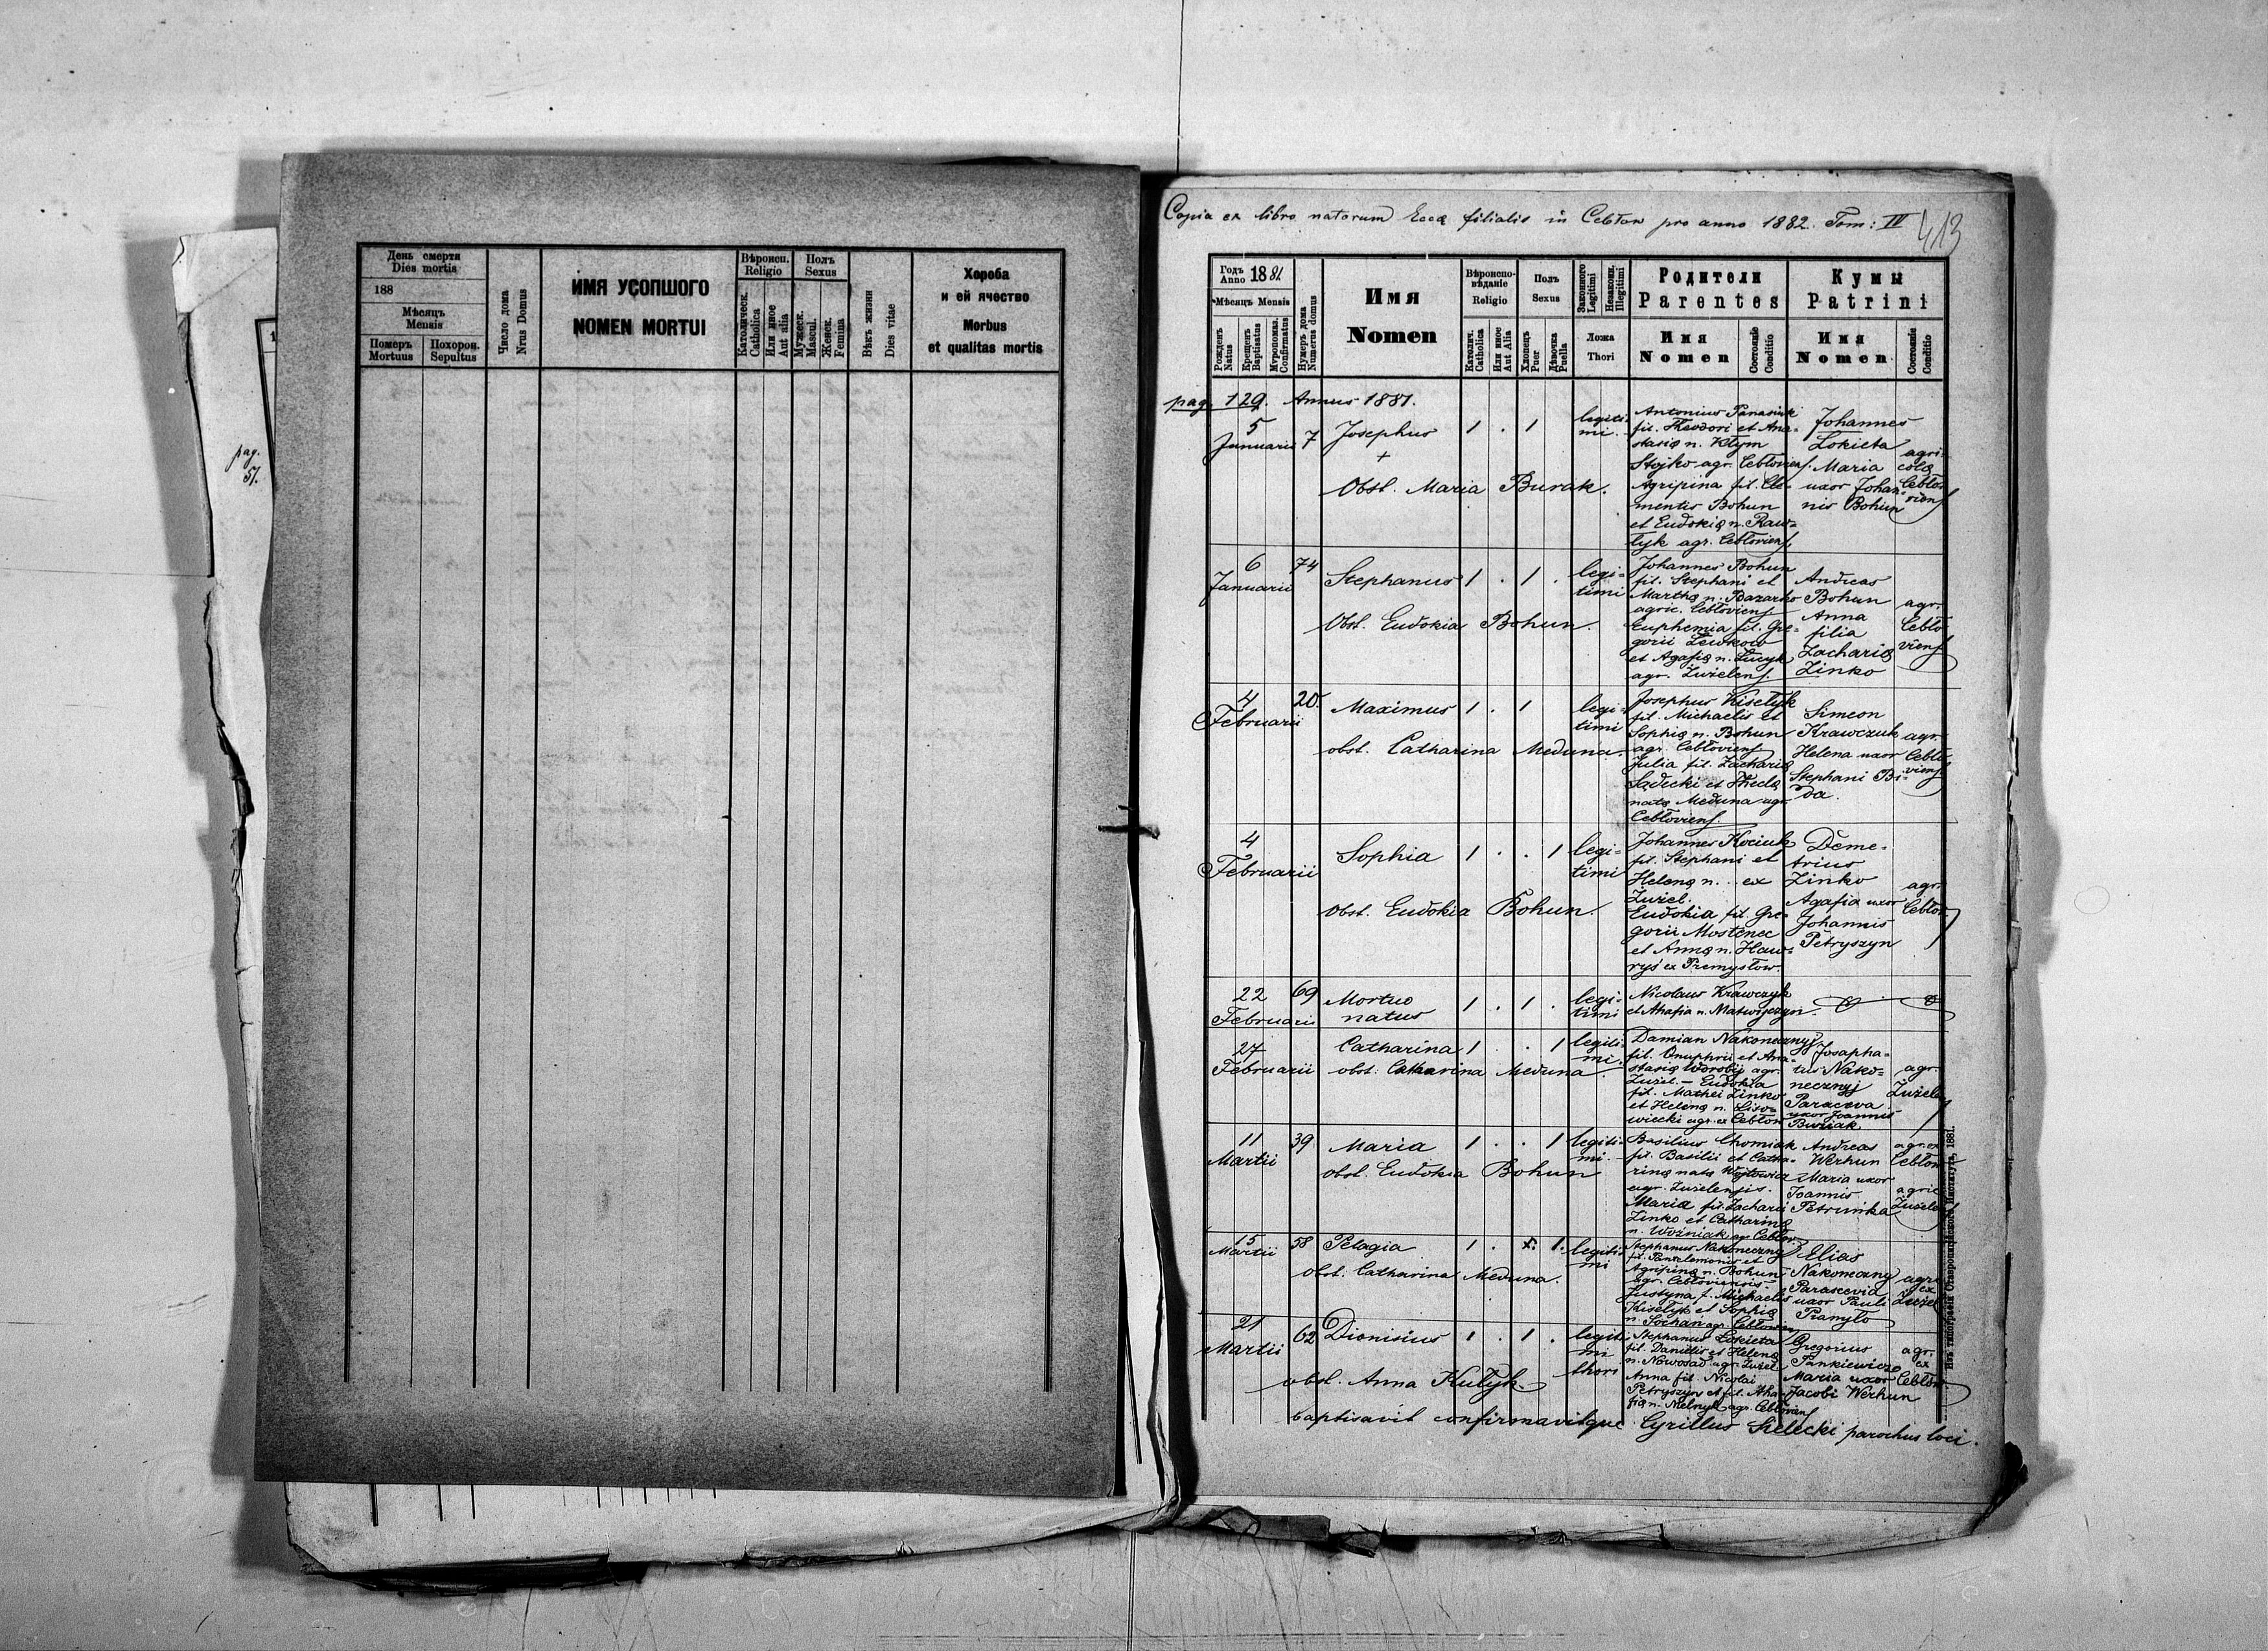 pag.
51.
День смерти
Dies mortis
188
Мѣсяць
Mensis
Померъ
Mortuus
Похорон.
Sepultus
Число дома
Nrus Domus
ИМЯ УСОПШОГО
NOMEN MORTUI
Вѣроисп.
Religio
Католическ.
Catholica
Или иное
Aut alia
Полъ
Sexus
Мужеск.
Mascul.
Женск.
Femina
Вѣкъ жизни
Dies vitae
Хороба
и ей ячество
Morbus
et qualitas mortis
Copia ex libro natorum Eccæ filialis in Cebłow pro anno 1882. Tom: IV
413
Годъ
Anno 1881
Мѣсяцъ Mensis
Рожденъ
Natus
Крещенъ
Baptisatus
Мѵропомаз.
Confirmatus
Нумеръ дома
Numerus domus
Имя
Nomen
Вѣроиспо-
вѣданіе
Religio
Католич.
Catholica
Или иное
Aut Alia
Полъ
Sexus
Хлопецъ
Puer
Дѣвочка
Puella
Законного
Legitimi
Незаконн.
Illegitimi
Ложа
Thori
Родители
Parentes
Имя
Nomen
Состояніе
Conditio
Кумы
Patrini
Имя
Nomen
Состояніе
Conditio
pag. 129. Annus 1881.
5
Januarii 7 Josephus 1 . 1
+
Obst. Maria Burak.
legiti-
mi.
Antonius Panasiuk
fil. Theodori et Ana-
stasiæ n. Kłym
Stojko agr. Cebłoviens.
Agripina fil. Cle-
mentis Bohun
et Eudokiæ n. Raw-
lyk agr. Cebłoviens.
Johannes
Łokieta
Maria
uxor Johan-
nis Bohun
agri-
colæ
Cebło-
viens
6
Januarii 74 Stephanus 1 . 1 .
Obst. Eudokia Bohun.
legi-
timi
Johannes Bohun
fil. Stephani et
Marthæ n. Bazarko
agric. Cebłoviens
Euphemia fil. Gre-
gorii Lewkow
et Agafiæ n. Łucyk
agr. Żużelens.
Andreas
Bohun
Anna
filia
Zachariæ
Zinko
agr.
Cebło-
viens
4
Februarii 20. Maximus 1 . 1
obst. Catharina Meduna.
legi-
timi
Josephus Kisełyk
fil. Michaelis et
Sophiæ n. Bohun
agr. Cebłoviens
Julia fil. Zachariæ
Sadecki et Theclæ
natæ Meduna agr.
Cebłoviens.
Simeon
Krawczuk
Helena uxor
Stephani Bi-
da.
agr.
Cebło-
viens
4
Februarii Sophia 1 . . 1
Obst. Eudokia Bohun.
legi-
timi
Johannes Kociuk
fil. Stephani et
Helenæ n. .. ex
Żużel.
Eudokia fil. Gre-
gorii Mostenec
et Annæ n. Haw-
ryś ex Premysłow.
Deme-
trius
Zinko
Agafia uxor
Johannis
Petryszyn
agr.
Cebłow
22
Februarii 69 Mortuo
natus 1 . 1 .
legi-
timi
Nicolaus Krawczyk
et Ahafia n. Matwijczyn.
27
Februarii Catharina 1 . . 1
obst: Catharina Meduna.
legiti-
mi.
Damian Nakonecznyj
fil. Onuphrii et Ana-
stasiæ Worobij agr.
Żużel. – Eudokia
fil. Mathei Zinko
et Helenæ n. Liso-
wiecki agr. ex Cebłow
Josapha-
tus Nako-
necznyj
Paraceva
uxor Joannis
Buniak
agr.
Żużel
11
Martii 39 Maria 1 . . 1
obst. Eudokia Bohun
legiti-
mi.
Basilius Chomiak
fil. Basilii et Catha-
rinæ natæ Wojtowicz
agr. Żużelensis.
Maria fil. Zacharii
Zinko et Catharinæ
n. Woźniak agr. Cebłow
Andreas
Werhun
Maria uxor
Joannis
Petrunka
agr. ex
Cebłow
agric
Żużel
15
Martii 58 Pelagia 1 . x. 1.
obst. Catharina Meduna.
legiti-
mi
Stephanus Nakoneczny
fil. Pantelemonis et
Agripinæ n. Bohun
agr. Cebłoviensis
Justyna f. Michaelis
Kisełyk et Sophiæ
n. Sochan agr. Cebłow
Elias
Nakoneczny
Parascevia
uxor Pauli
Pranyło
agr.
ex
Żużel
21
Martii 62 Dionisius 1 . 1 .
obst. Anna Kułyk.
legiti
mi
thori
Stephanus Łokieta
fil. Danielis et Helenæ
n. Nowosad agr. Żużel
Anna fil. Nicolai
Petryszyn et fil. Aha-
fiæ n. Melnyk agr. Cebłoviens
Gregorius
Pankiewicz
Maria uxor
Jacobi Werhun
agr.
ex
Cebłow
baptisavit confirmavitque Cyrillus Sielecki parochus loci.
Изъ типографіи Ставропигійского Института, 1881.